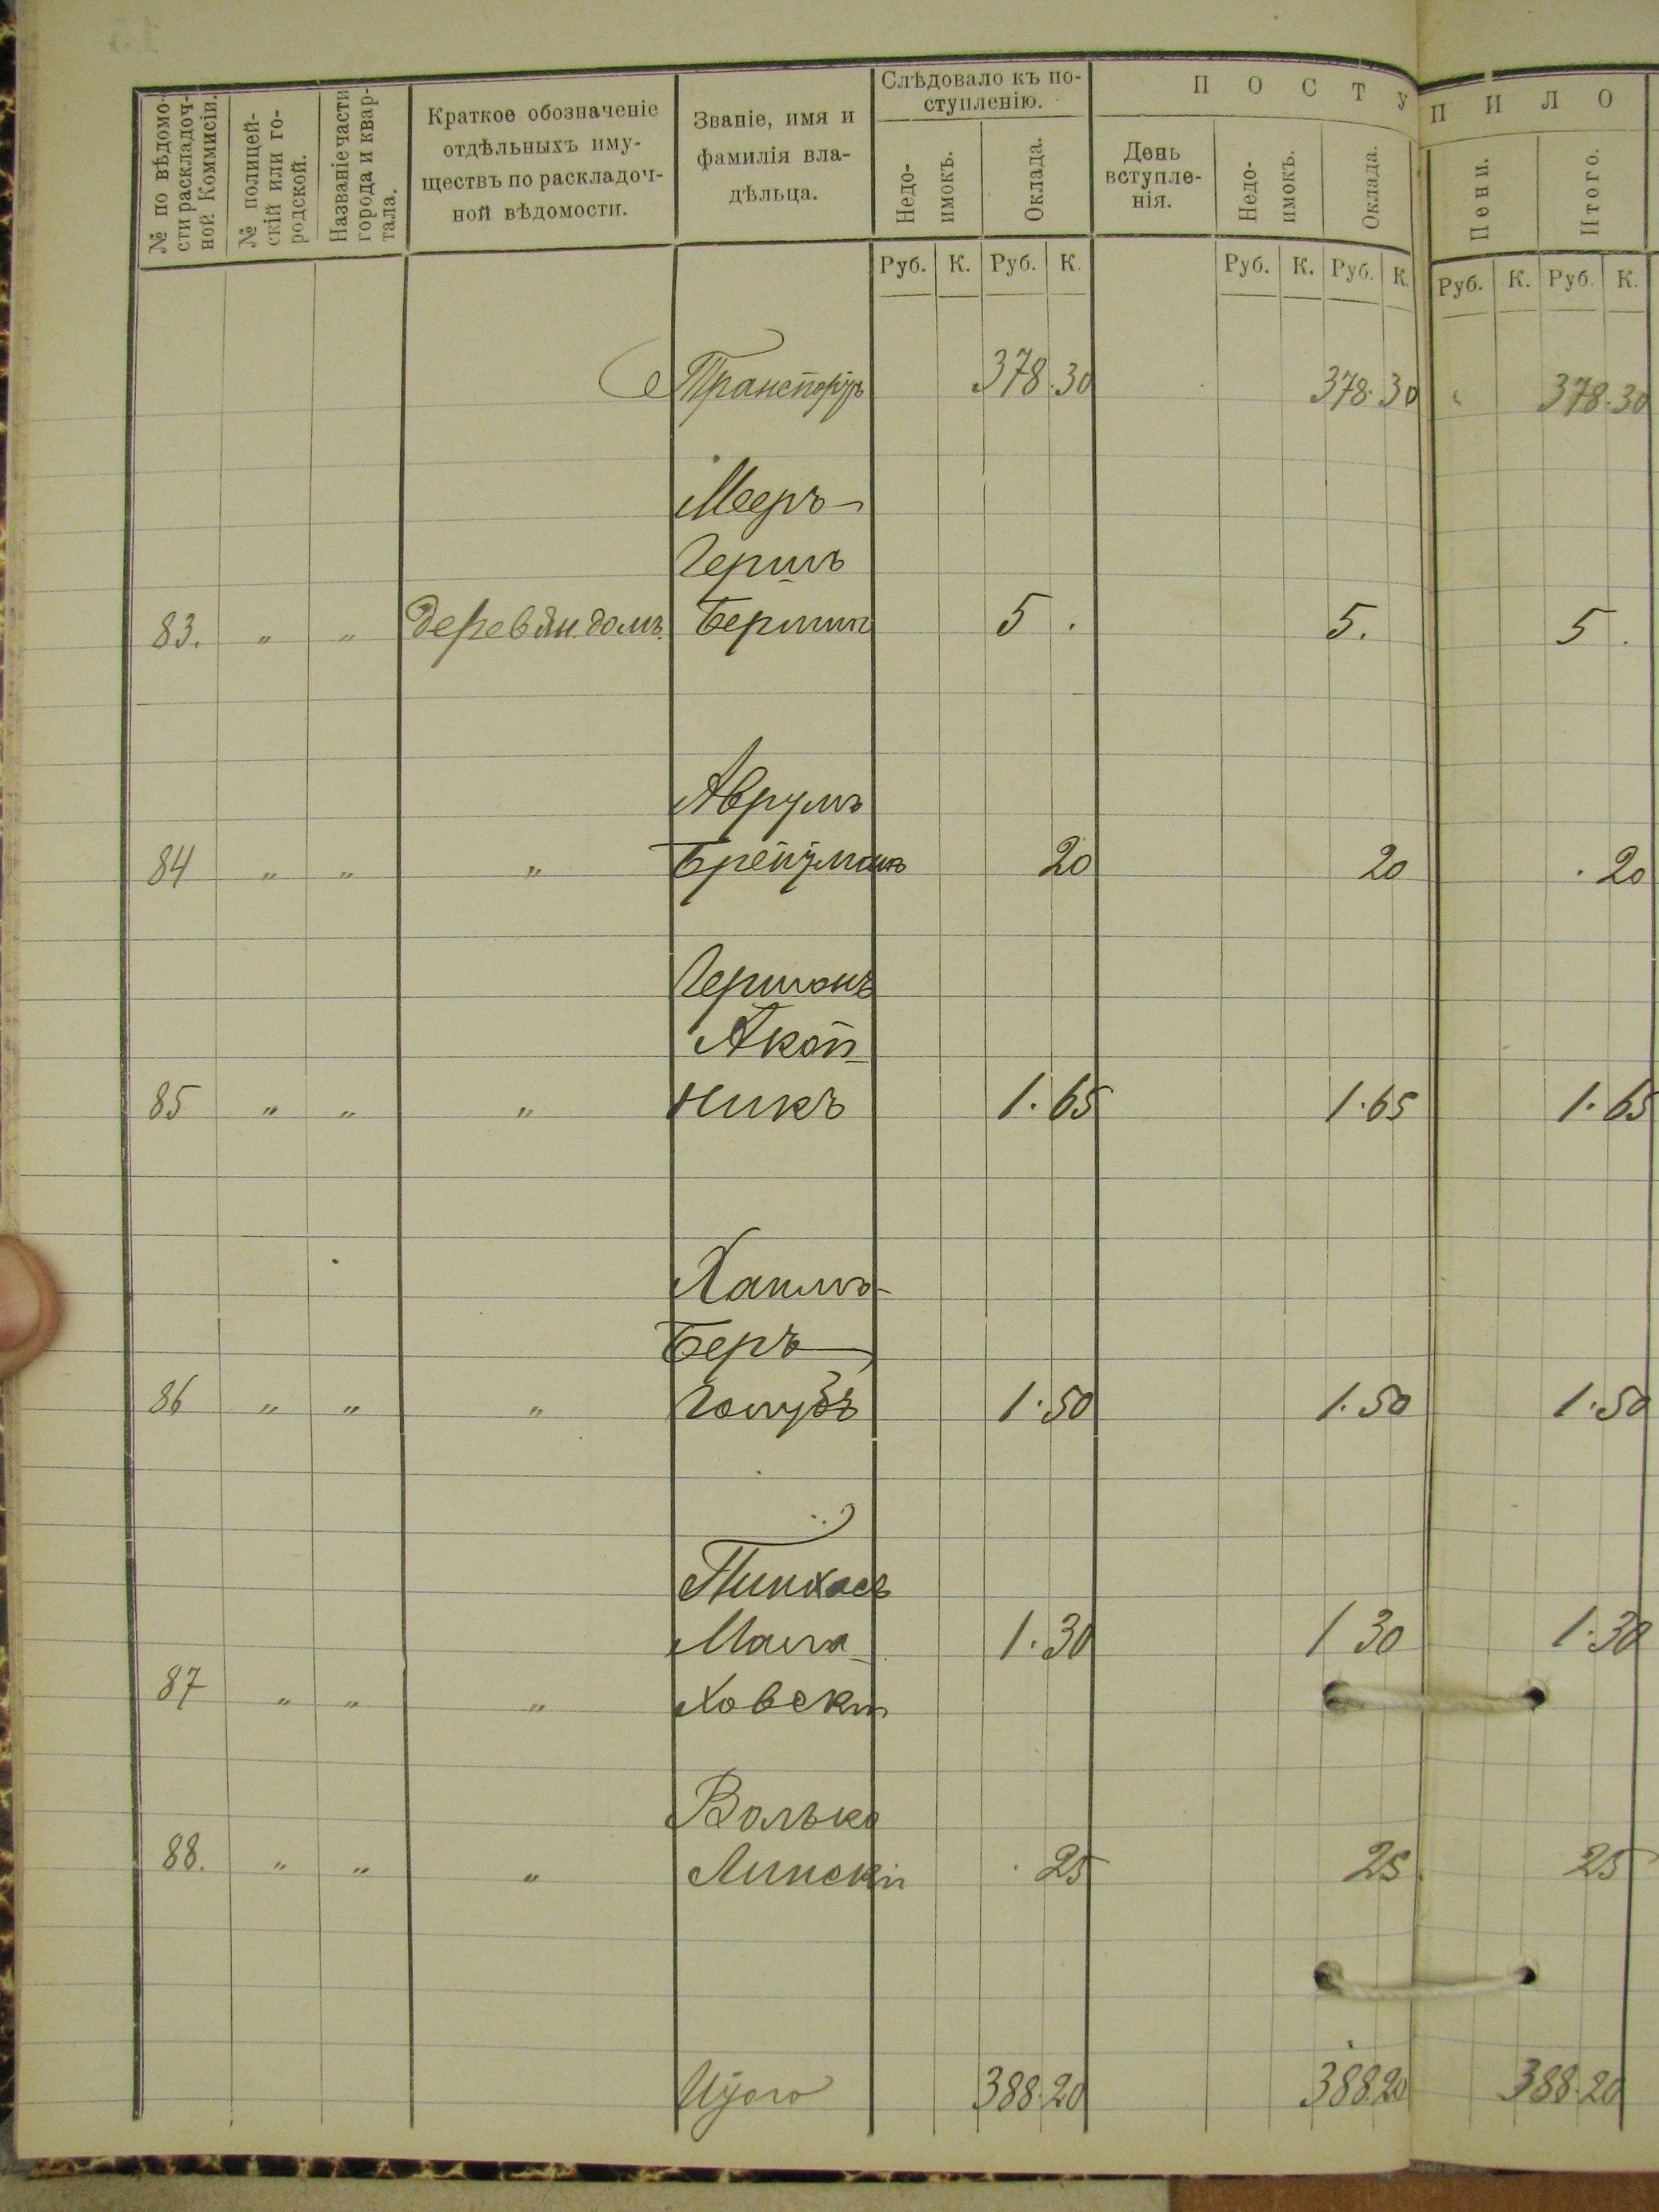 № по вѣдомо-
сти раскладоч-
ной Коммисіи.
№ полицей-
скій или го-
родской.
Названіе части
города и квар-
тала.
Краткое обозначеніе
отдѣльныхъ иму-
ществъ по раскладоч-
ной вѣдомости.
Званіе, имя и
фамилія вла-
дѣльца.
Слѣдовало къ по-
ступленію.
Недо-
имокъ.
Оклада.
ПОСТУПИЛО
День
вступле-
нія.
Недо-
имокъ.
Оклада.
Пени.
Итого.
Руб. К. Руб. К. Руб. К. Руб. К. Руб. К. Руб. К.
Транспортъ 378.30 378.30 378.30
Мееръ-
Гершъ
83. " " деревян. домъ. 5. 5. 5.
Аврумъ
84 " " " Брейтманъ 20 20 . 20
Гершонъ
Акот-
85 " " " никъ 1.65 1.65 1.65
Хаимъ-
Беръ
86 " " " Голубъ 1.50 1.50 1.50
Пинхасъ
Мала- 1.30 1 30 1.30
87 " " " ховскій
Волько
88. " " " Липскій . 25 25. 25
Итого 388.20 388.20 388.20